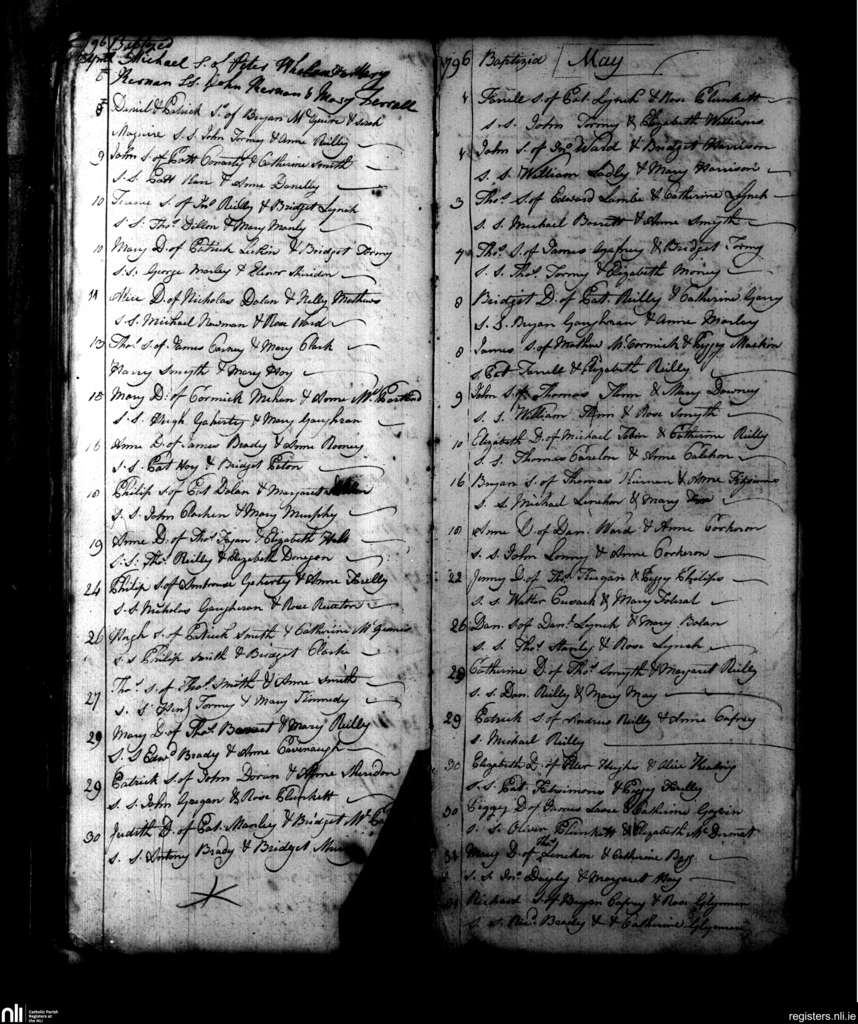 1796 Baptized
April Michael S. of Peter Whelan & Mary
Kernan S.S. John Kernan & Mary Ferrall
8 Daniel & Patrick Ss. of Bryan McGuire & Sarah
Maguire S.S. John Tormy & Anne Reilly
9 John S. of Patt Conaty & Catherine Smith
S.S. Patt Harr & Anne Donelly
10 S. of Jno. Reilly & Bridget Lynch
S.S. Thos. Dillon & Mary Manly
10 Mary D. of Patrick & Bridget Tormy
S.S. George Manley & Elinor Sheridan
11 Alice D. of Nicholas Dolan & Nelly Mathews
S.S. Michael Newman & Rose Ward
13 Thos. S. of James Carney & Mary Clark
Harry Smyth & Mary Hoy
15 Mary D. of Cormick Mehan & Anne
S.S. Hugh Gaherty & Mary Gaughran
16 Anne D. of James Brady & Anne Rooney
S.S. Pat Hoy & Bridget
Philip S. of Pat Dolan & Margaret
S.S. John Clarken & Mary Murphy
19 Anne D. of Thos. Fagan & Elizabeth Hall
S.S. Thos. Reilly & Elizabeth Donegan
24 Philip S. of Ambrose Gaherty & Anne
S.S. Nicholas Gaughran & Rose
26 Hugh S. of Patrick Smith & Catherine
S.S. Philip Smith & Bridget Clarke
27 Thos. S. of Thos. Smith & Anne Smith
S.S. Tormy & Mary
29 Mary D. of Thos. Barrett & Mary Reilly
S.S. Edwd. Brady & Anne Cavenaugh
29 Patrick S. of John Doran & Anne Sheridan
S.S. John Geogan & Rose Plunkett
30 Judith D. of Pat. Manley & Bridget
S.S. Antony Brady & Bridget
1796 Baptizid May
S. of Pat. Lynch & Rose Plunkett
S.S. John Tormy & Elizabeth Williams
John S. of Jno. Ward & Bridget Harrison
S.S. William Ledly & Mary Harrison
3 Thos. S. of Edward Lambe & Catherine Lynch
S.S. Michael Barrett & Anne Smyth
7 Thos. S. of James Gafney & Bridget Tormy
S.S. Thos. Tormy & Elizabeth Money
8 Bridget D. of Pat. Reilly & Catherine Garry
S.S. Bryan Gaughran & Anne Manley
8 James S. of Mathew McCormick & Peggy Mackin
S. Pat Ferrell & Elizabeth Reilly
9 John S. of Thomas Thom & Mary Downey
S.S. William Thom & Rose Smyth
10 Elizabeth D. of Michael Tobin & Catherine Reilly
S.S. Thomas & Anne Calehon
16 Bryan S. of Thomas Kiernan & Anne
S.S. Michael Linehon & Mary
Anne D. of Dan. Ward & Anne Corkoron
S.S. John & Anne Corkeron
22 Jenny D. of Thos. & Peggy Philips
S.S. Walter Cusack & Mary
26 Dan. S. of Danl. Lynch & Mary Bolan
S.S. Thos. Stanley & Rose Lynch
28 Catherine D. of Thos. Smyth & Margaret Reilly
S.S. Dan. Reilly & Mary May
29 Patrick S. of Andrew Reilly & Anne Cafrey
S. Michael Reilly
30 Elizabeth D. of Peter Hughes & Alice
S.S. Pat. Fitzsimons & Peggy
30 Peggy D. of James & Catherine
S.S. Oliver Plunkett & Elizabeth McDermot
Mary D. of Thos. Linehon & Catherine
S.S. Jno. & Margaret Hoy
Richard S. of Bryan Cafrey & Rose
S.S. Brady & Catherine
nli
Catholic Parish
Registers at
the NLI
registers.nli.ie